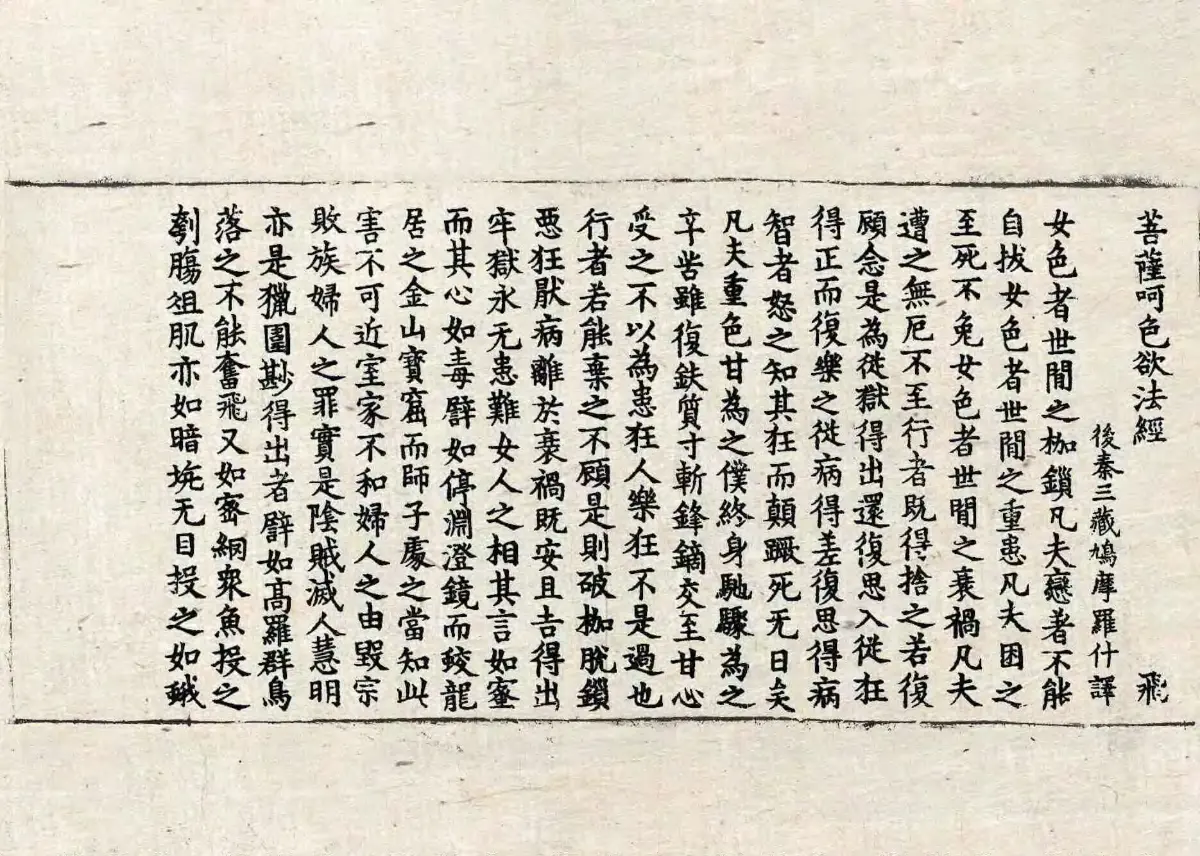 菩薩呵色欲法經 飛
後秦三藏鳩摩羅什譯
女色者世閒之枷鎖凡夫戀著不能
自拔女色者世閒之重患凡夫困之
至死不免女色者世閒之衰禍凡夫
遭之無厄不至行者既得捨之若復
顧念是為從獄得出還復思入從狂
得正而復樂之從病得差復思得病
智者怒之知其狂而顛蹶死无日矣
凡夫重色甘為之僕終身馳驟為之
辛苦雖復鈇質寸斬鋒鏑交至甘心
受之不以為患狂人樂狂不是過也
行者若能棄之不顧是則破枷脫鎖
惡狂猒病離於衰禍既安且吉得出
牢獄永无患難女人之相其言如蜜
而其心如毒譬如停淵澄鏡而蛟龍
居之金山寶窟而師子處之當知此
害不可近室家不和婦人之由毀宗
敗族婦人之罪實是陰賊滅人慧明
亦是獵圍尠得出者譬如高羅群鳥
落之不能奮飛又如密網眾魚投之
刳腸俎肌亦如暗坑无目投之如蛾